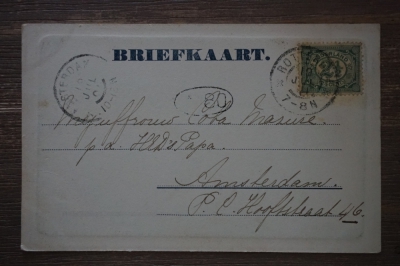 BRIEFKAART.
ROT
7-8N
2½
Mejuffrouw Coba Masure.
p/a. HEd. Papa.
Amsterdam.
P. C. Hooftstraat 46.